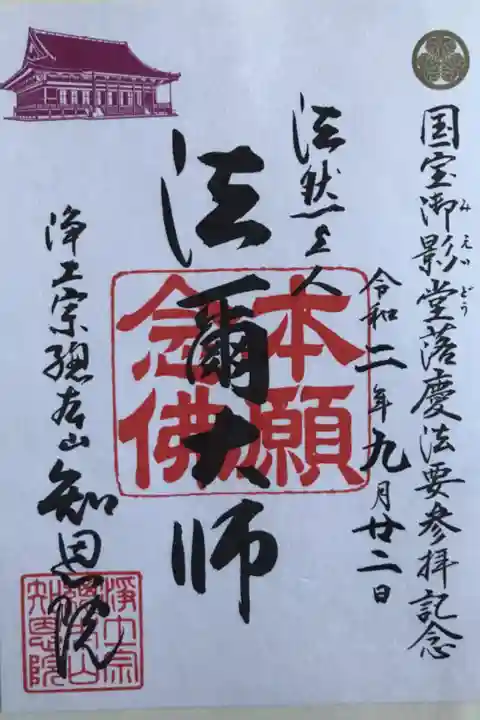 国宝御影堂落慶法要参拝記念
みえいどう
令和二年九月廿二日
法然上人
法爾大師
本願
念佛
浄土宗総本山
知恩院
淨土宗
總本山
知恩院